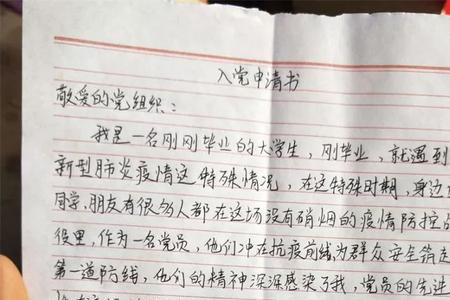 入党申请书
敬爱的党组织：
我是一名刚刚毕业的大学生，刚毕业，就遇到
新型肺炎疫情这一特殊情况，在这特殊时期，身边
同学，朋友有很多人都在这场没有硝烟的疫情防控
役里，作为一名党员，他们冲在抗疫前线为群众安全筑
第一道防线，他们的精神深深感染了我，党员的先进